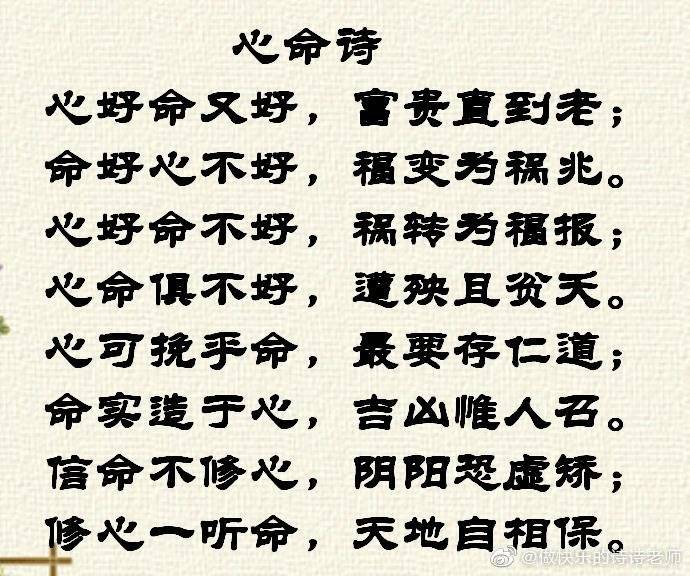 心命诗
心好命又好，富贵直到老；
命好心不好，福变为祸兆。
心好命不好，祸转为福报；
心命俱不好，遭殃且贫夭。
心可挽乎命，最要存仁道；
命实造于心，吉凶惟人召。
信命不修心，阴阳恐虚矫；
修心一听命，天地自相保。
@做快乐的诗诗老师